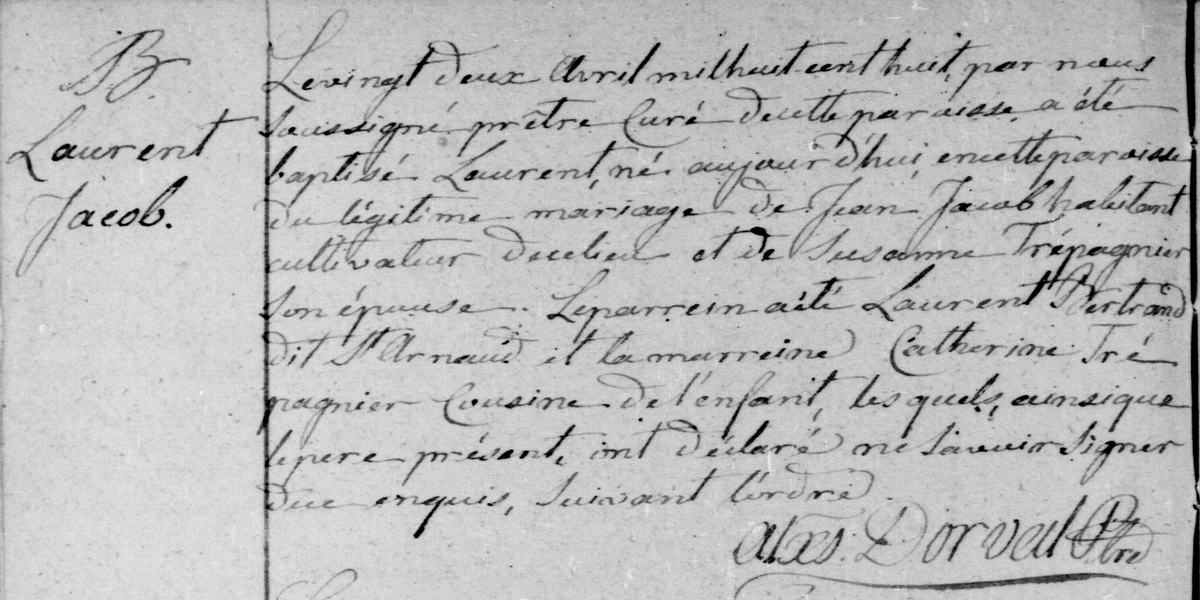 B
Laurent
Jacob.
Le vingt deux Avril mil huit cent huit, par nous
soussigné prêtre Curé de cette paroisse, a été
baptisé Laurent, né aujourd'hui en cette paroisse
du légitime mariage de Jean Jacob habitant
cultivateur de ce lieu et de Susanne Trépagnier
son épouse. Le parrein a été Laurent Bertrand
dit St Arnaud et la marreine Catherine Tré
pagnier Cousine de l'enfant, les quels, ainsi que
le pere présent, ont déclaré ne savoir signer
de ce enquis, suivant l'ordre.
Alexs. Dorval Ptre